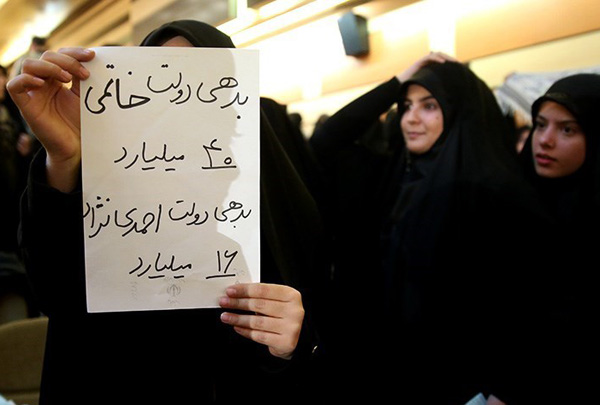 بدهی دولت خاتمی
۴۰ میلیارد
بدهی دولت احمدی نژاد
۱۶ میلیارد